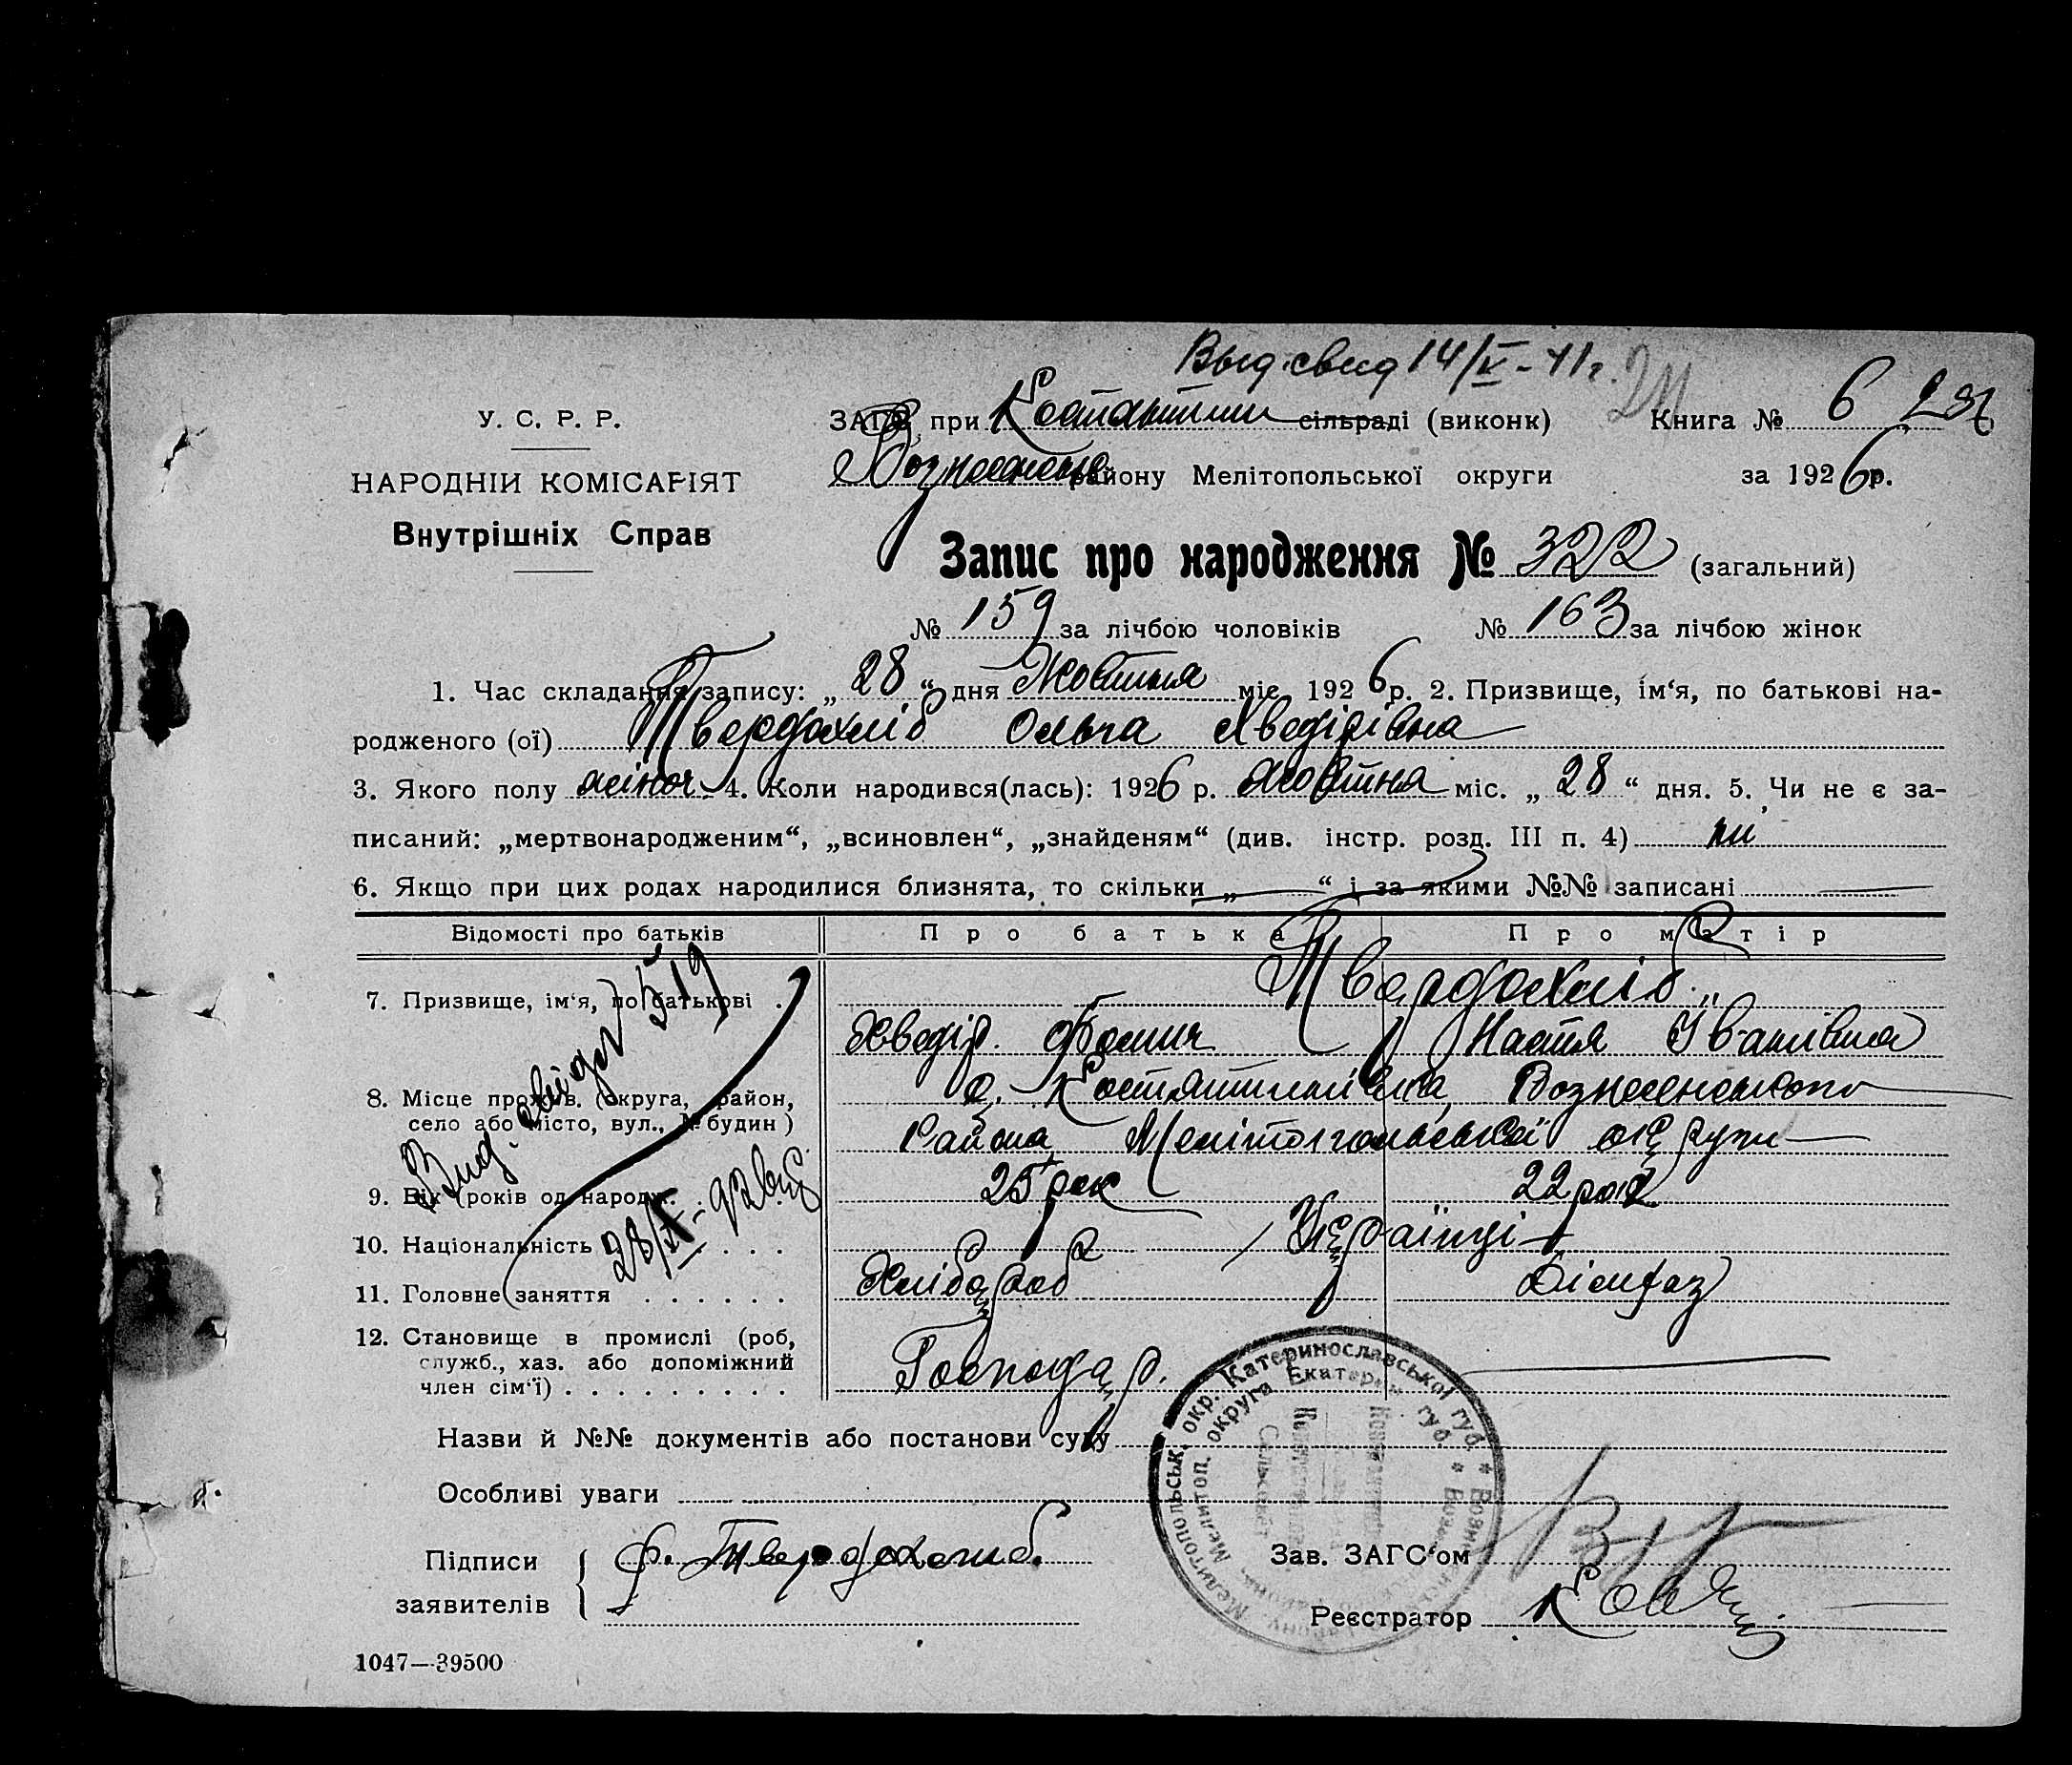 Выд. свид 14/V-41г.
У. С. Р. Р.
ЗАГС при Костантин сільраді (виконк)
Книга № 6
НАРОДНІЙ КОМІСАРІЯТ
району Мелітопольської округи
за 1926 р.
Внутрішніх Справ
Запис про народження № 322 (загальний)
№ 159 за лічбою чоловіків № 163 за лічбою жінок
1. Час складання запису: „ 28 “ дня Жовтня міс. 1926 р. 2. Призвище, ім‘я, по батькові на-
родженого (ої) Твердохліб Ольга Хведірівна
3. Якого полу жіноч. 4. Коли народився(лась): 1926 р. Жовтня міс. „ 28 “ дня. 5. Чи не є за-
писаний: „мертвонародженим“, „всиновлен“, „знайденям“ (див. інстр. розд. III п. 4) ні
6. Якщо при цих родах народилися близнята, то скільки „ “ і за якими №№ записані
Відомості про батьків
Про батька
Про матір
7. Призвище, ім‘я, по батькові .
Твердохліб
Хведір. Фомич
Настя Іванівна
8. Місце прожив. (округа, район,
село або місто, вул., № будин )
с. Костянтинівка, Вознесенського
Района, Мелітопольської округи
9. Вік (років од народж.
25 рок
22 рок
10. Національність . . . .
Українці
11. Головне заняття . . . . . .
Хлібороб
12. Становище в промислі (роб,
служб., хаз. або допоміжний
член сім‘ї) . . . . . . . . .
Господар.
Вид. свідоц 3519
Назви й №№ документів або постанови суду
Особливі уваги
Підписи
заявителів
Ф. Твердохлиб.
Зав. ЗАГС‘ом
Реєстратор
Мелітопольськ. окр. Катеринославської губ. * Вознесенськ
Мелитоп. округа Екатерин. губ. *
1047—39500